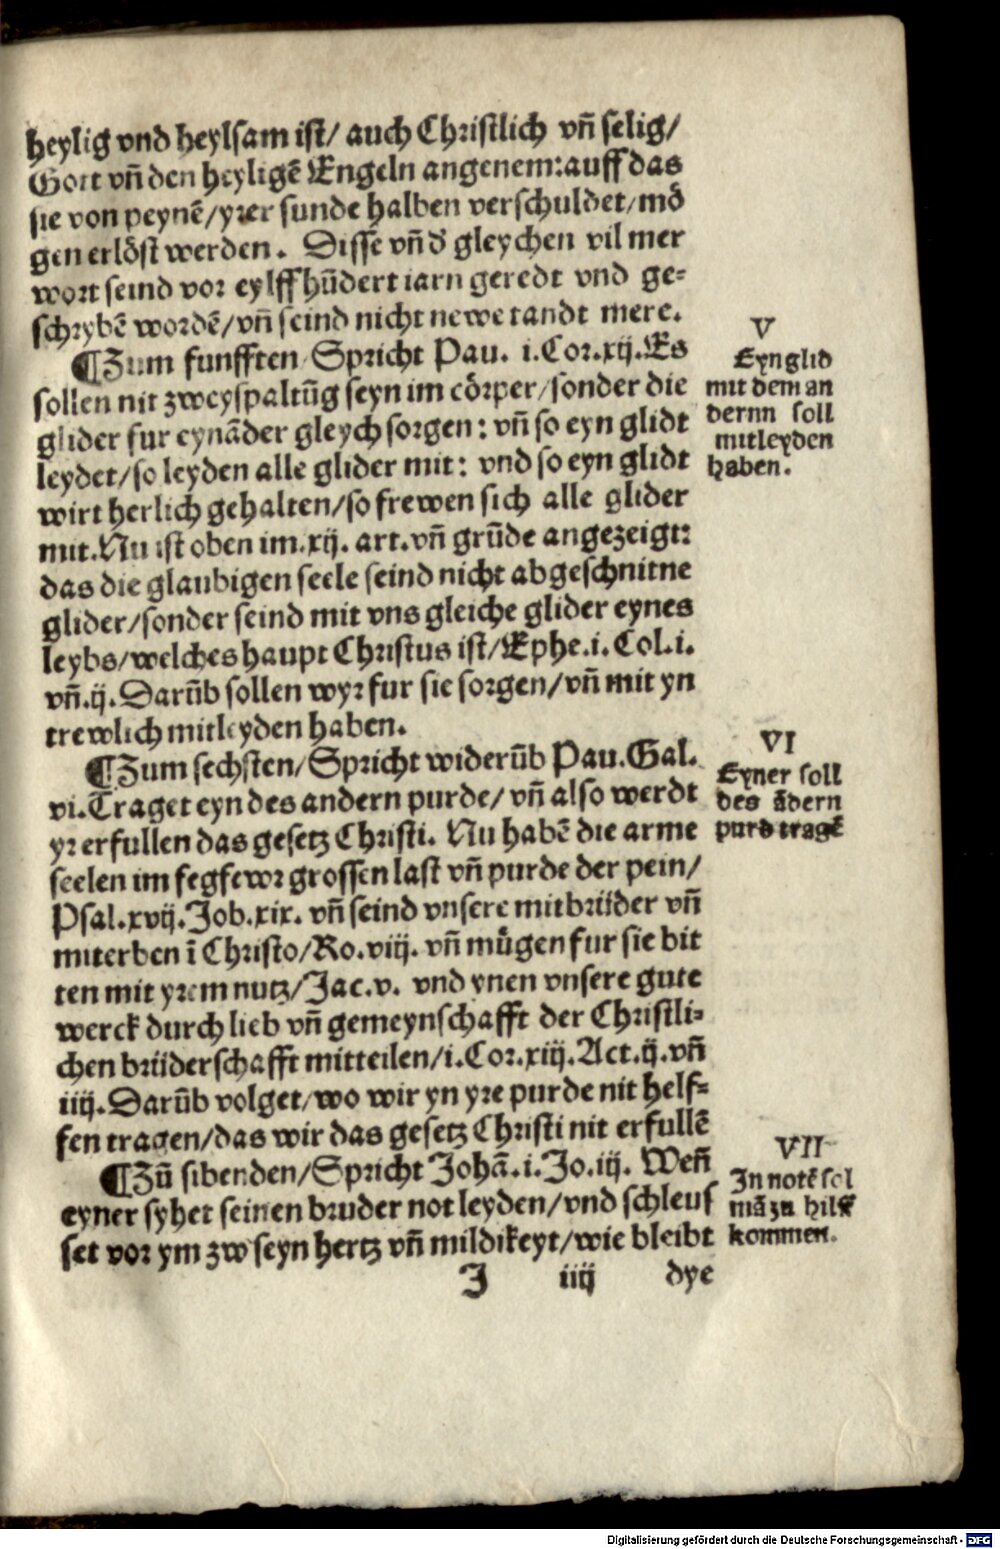 heylig vnd heylsam ist/ auch Christlich vn̄ selig/
Gott vn̄ den heyligē Engeln angenem: auff das
sie von peynē/ yrer sunde halben verschuldet/ mö
gen erlöst werden. Disse vn̄ d' gleychen vil mer
wort seind vor eylff hūdert iarn geredt vnd ge⸗
schrybē wordē/ vn̄ seind nicht newe tandt mere.
¶Zum funfften Spricht Pau. i. Cor. xij. Es
sollen nit zweyspaltūg seyn im cörper/ sonder die
glider fur eynāder gleych sorgen: vn̄ so eyn glidt
leydet/ so leyden alle glider mit: vnd so eyn glidt
wirt herlich gehalten/ so frewen sich alle glider
mit. Nu ist oben im. xij. art. vn̄ grūde angezeigt:
das die glaubigen seele seind nicht abgeschnitne
glider/ sonder seind mit vns gleiche glider eynes
leybs/ welches haupt Christus ist/ Ephe. i. Col. i.
vn̄. ij. Darūb sollen wyr fur sie sorgen/ vn̄ mit yn
trewlich mitleyden haben.
V
Eyn glid
mit dem an
dernn soll
mitleyden
haben.
¶Zum sechsten/ Spricht widerūb Pau. Gal.
vi. Traget eyn des andern purde/ vn̄ also werdt
yr erfullen das gesetz Christi. Nu habē die arme
seelen im fegfewr grossen last vn̄ purde der pein/
Psal. xvij. Job. xix. vn̄ seind vnsere mitbrüder vn̄
miterben ī Christo/ Ro. viij. vn̄ mügen fur sie bit
ten mit yrem nutz/ Jac. v. vnd ynen vnsere gute
werck durch lieb vn̄ gemeynschafft der Christli⸗
chen brüderschafft mitteilen/ i. Cor. xiij. Act. ij. vn̄
iiij. Darūb volget/ wo wir yn yre purde nit helf⸗
fen tragen/ das wir das gesetz Christi nit erfullē
VI
Eyner soll
des ādern
purd tragē
¶Zū sibenden/ Spricht Johā. i. Jo. iij. Wen̄
eyner syhet seinen bruder not leyden/ vnd schleus
set vor ym zw seyn hertz vn̄ mildikeyt/ wie bleibt
VII
In notē sol
mā zu hilff
kommen.
J iiij dye
Digitalisierung gefördert durch die Deutsche Forschungsgemeinschaft - DFG